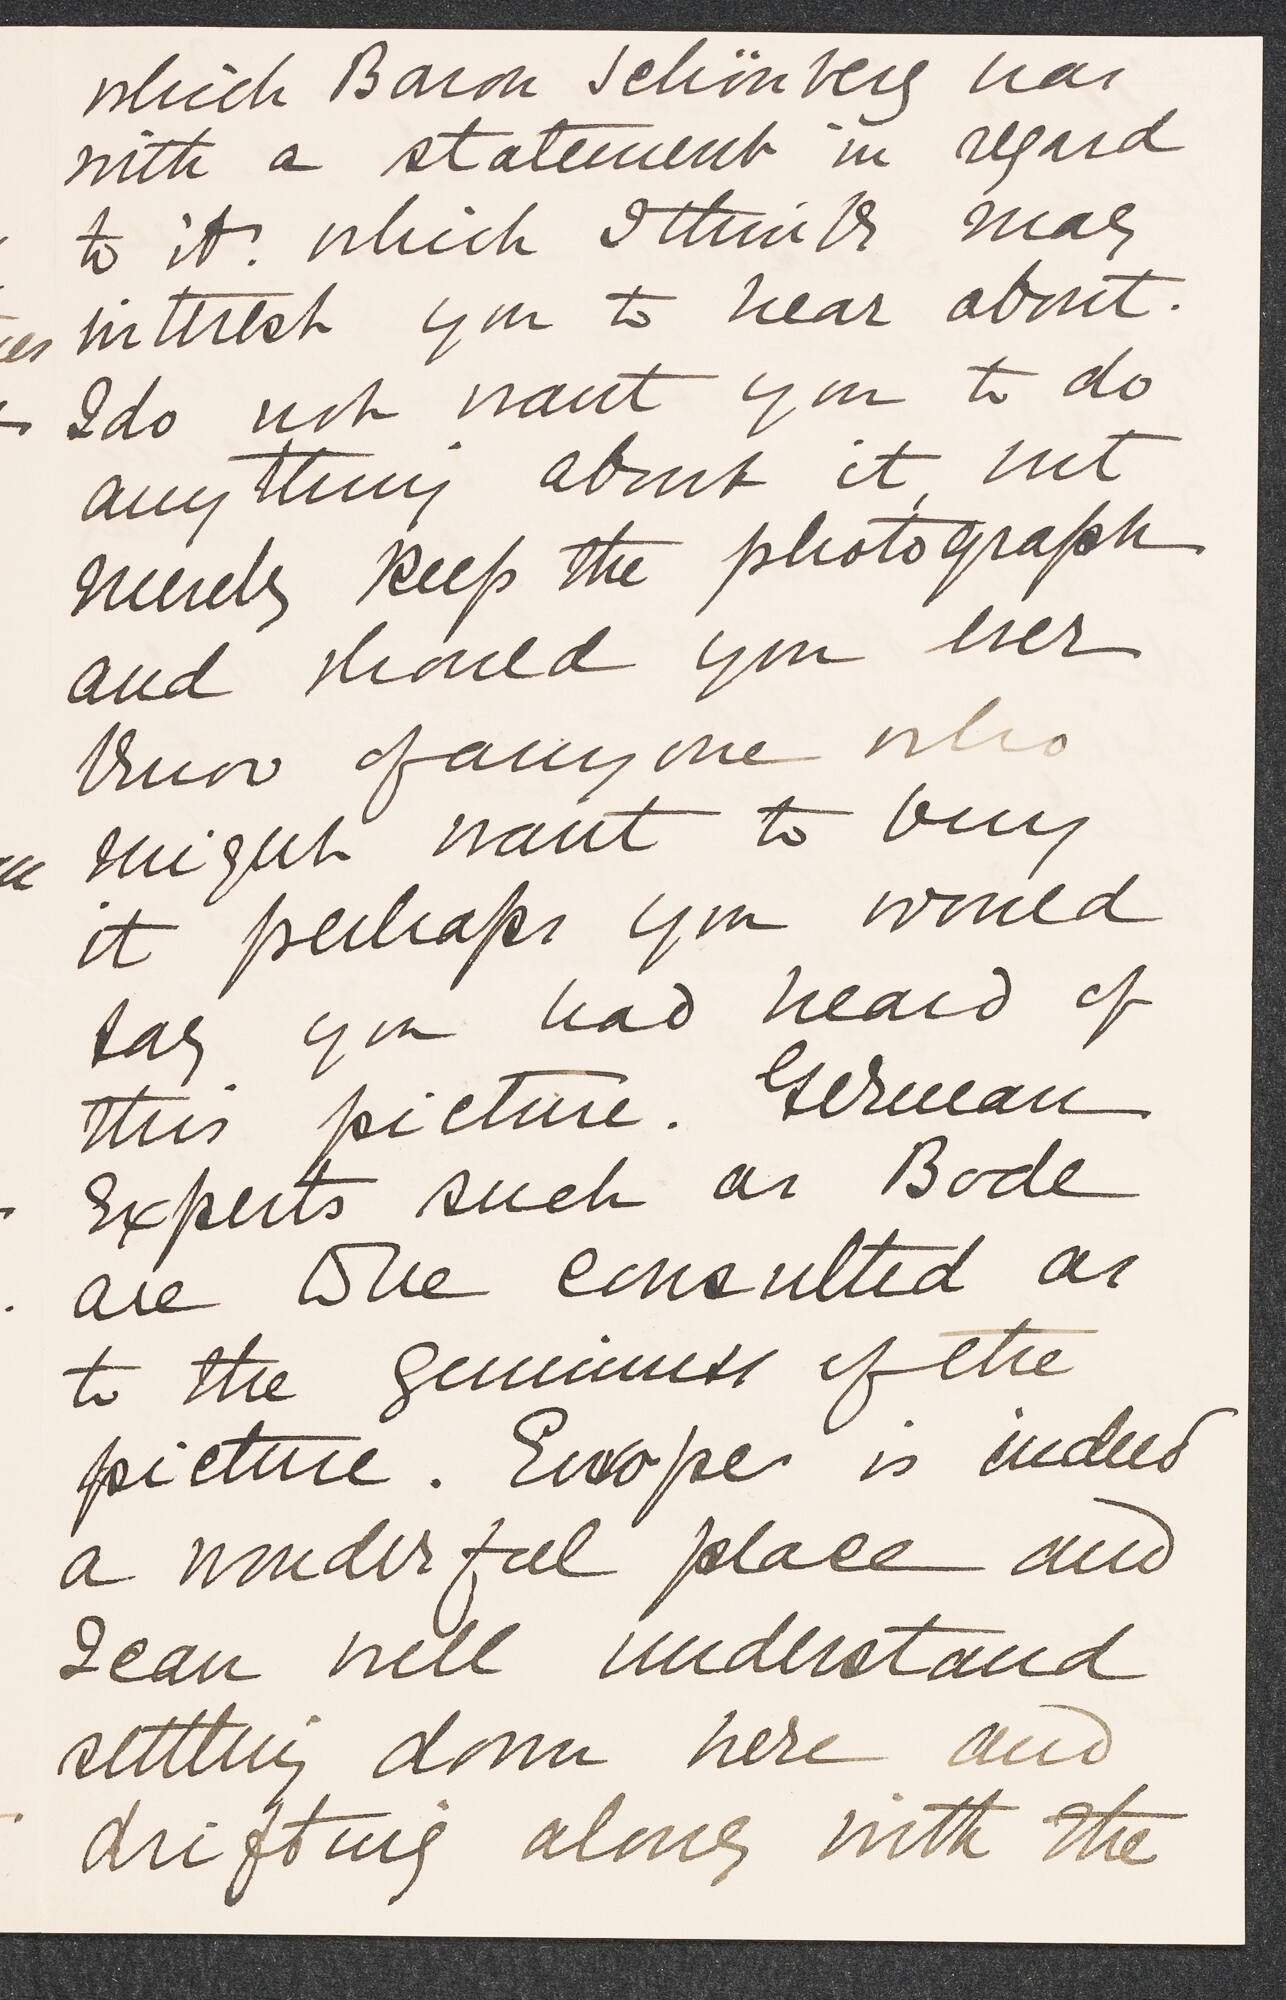 which Baron Schönberg has
with a statement in regard
to it. which I think may
interest you to hear about.
I do not want you to do
anything about it, but
merely keep the photograph
and should you ever
know of anyone who
might want to buy
it perhaps you would
say you had heard of
this picture. German
Experts such as Bode
are to be consulted as
to the genuiness of the
picture. Europe is indeed
a wonderful place and
I can well understand
settling down here and
drifting along with the